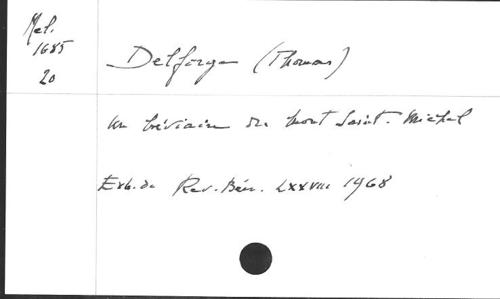 Mel.
1685
20
Delforge (Thomas)
Un bréviaire du Mont Saint-Michel
Extr. de Rev. Bén. LXXVIII 1968